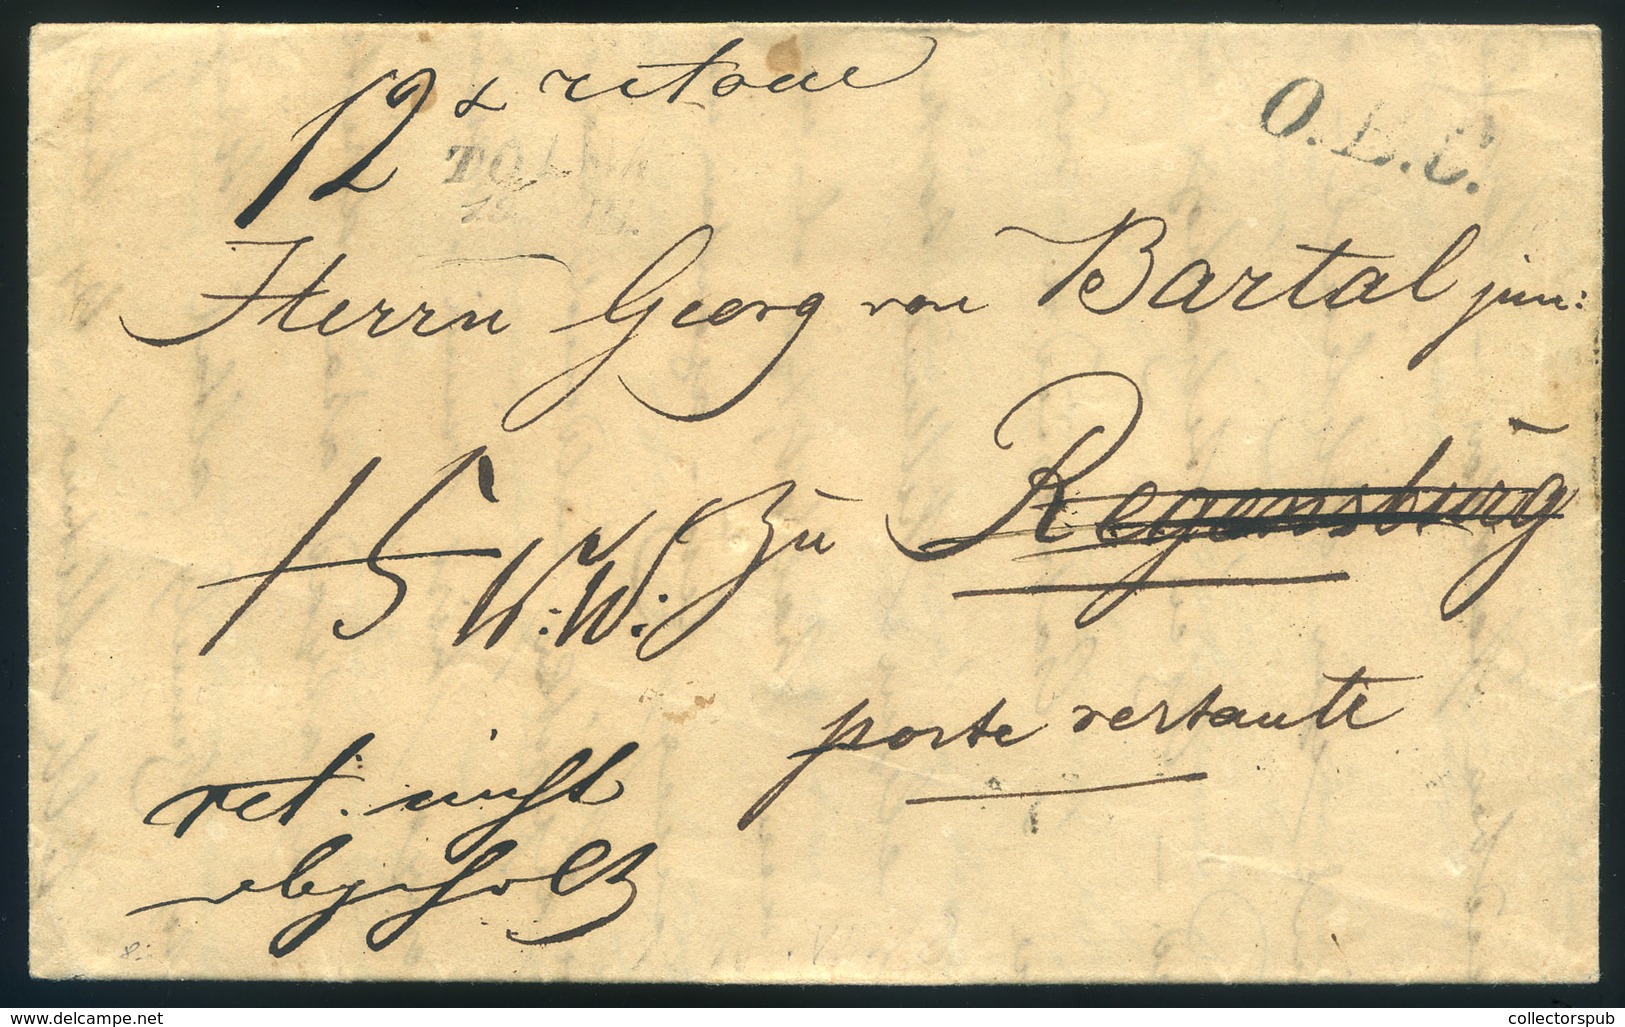 12 x retour
O.B.C.
TOLNA
Herrn Georg von Bartal jun:
15 W:W: zu Regensburg
poste restante
ret. nicht
abgeholt
www.delcampe.net
collectorspub